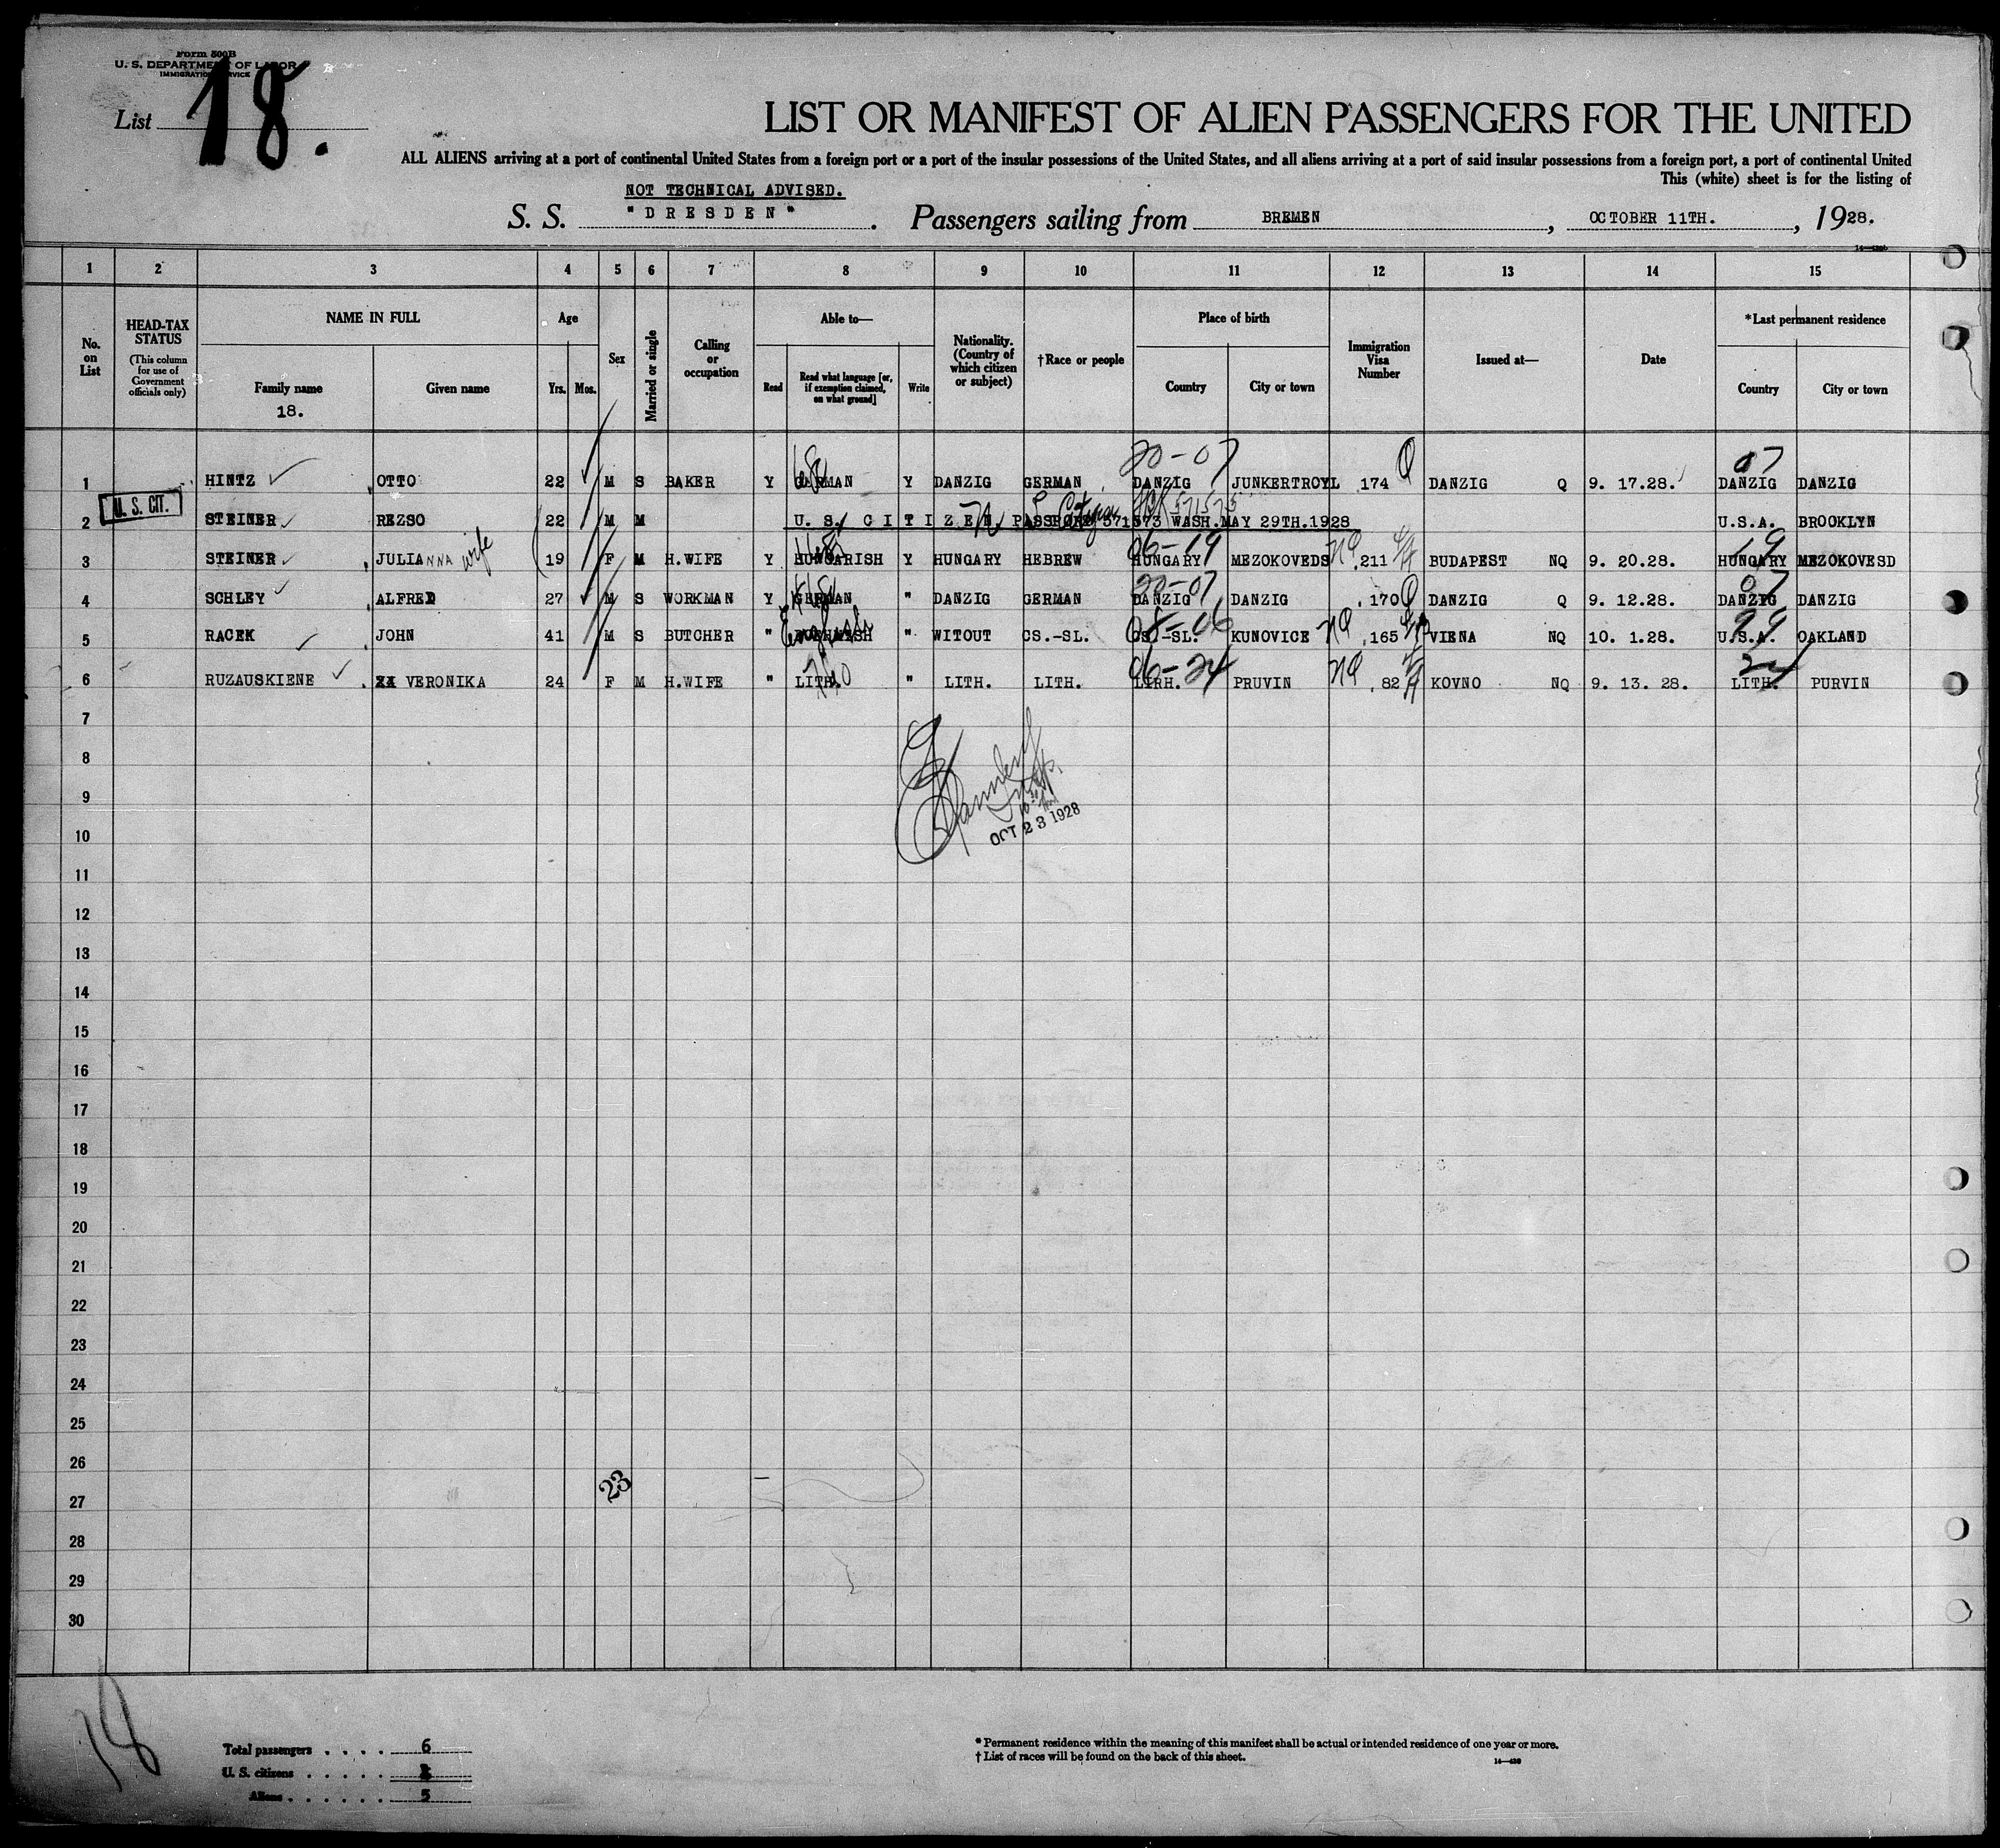 Form 500B
U. S. DEPARTMENT OF LABOR
IMMIGRATION SERVICE
List 18.
LIST OR MANIFEST OF ALIEN PASSENGERS FOR THE UNITED
ALL ALIENS arriving at a port of continental United States from a foreign port or a port of the insular possessions of the United States, and all aliens arriving at a port of said insular possessions from a foreign port, a port of continental United
This (white) sheet is for the listing of
NOT TECHNICAL ADVISED.
S. S. "DRESDEN". Passengers sailing from BREMEN, OCTOBER 11TH., 1928.
1 2 3 4 5 6 7 8 9 10 11 12 13 14 15
No. on List
HEAD-TAX STATUS
(This column for use of Government officials only)
NAME IN FULL
Family name
18.
Given name
Age
Yrs. Mos.
Sex
Married or single
Calling or occupation
Able to—
Read
Read what language [or, if exemption claimed, on what ground]
Write
Nationality. (Country of which citizen or subject)
†Race or people
Place of birth
Country City or town
Immigration Visa Number
Issued at—
Date
*Last permanent residence
Country City or town
20-07 07
1 HINTZ OTTO 22 M S BAKER Y GERMAN Y DANZIG GERMAN DANZIG JUNKERTROYL 174 Q DANZIG Q 9. 17.28. DANZIG DANZIG
U. S. CIT.
2 STEINER REZSO 22 M M U. S. CITIZEN PASSPORT 571573 WASH.MAY 29TH.1928 U.S.A. BROOKLYN
06-19 19
3 STEINER JULIANNA wife 19 F M H.WIFE Y HUNGARISH Y HUNGARY HEBREW HUNGARY MEZOKOVEDS NQ 211 BUDAPEST NQ 9. 20.28. HUNGARY MEZOKOVESD
20-07 07
4 SCHLEY ALFRED 27 M S WORKMAN Y GERMAN " DANZIG GERMAN DANZIG DANZIG 170 Q DANZIG Q 9. 12.28. DANZIG DANZIG
English 08-06 99
5 RACEK JOHN 41 M S BUTCHER " " WITOUT CS.-SL. CS.-SL. KUNOVICE NQ 165 VIENA NQ 10. 1.28. U.S.A. OAKLAND
06-24 24
6 RUZAUSKIENE VERONIKA 24 F M H.WIFE " LITH. " LITH. LITH. LITH. PRUVIN NQ 82 KOVNO NQ 9. 13. 28. LITH. PURVIN
7
8
9
10
OCT 23 1928
11
12
13
14
15
16
17
18
19
20
21
22
23
24
25
26
23
27
28
29
30
18
Total passengers . . . . 6
U. S. citizens . . . . .
Aliens . . . . . . 5
* Permanent residence within the meaning of this manifest shall be actual or intended residence of one year or more.
† List of races will be found on the back of this sheet.